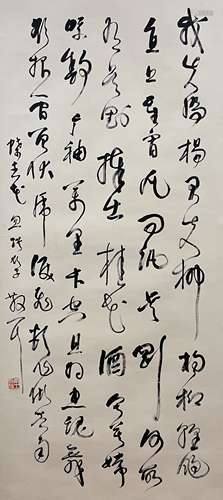 我失骄杨君失柳杨柳轻飏
直上重霄九问讯吴刚何所
有吴刚捧出桂花酒寂寞嫦
娥舒广袖万里长空且为忠魂舞
忽报人间曾伏虎泪飞顿作倾盆雨
蝶恋花